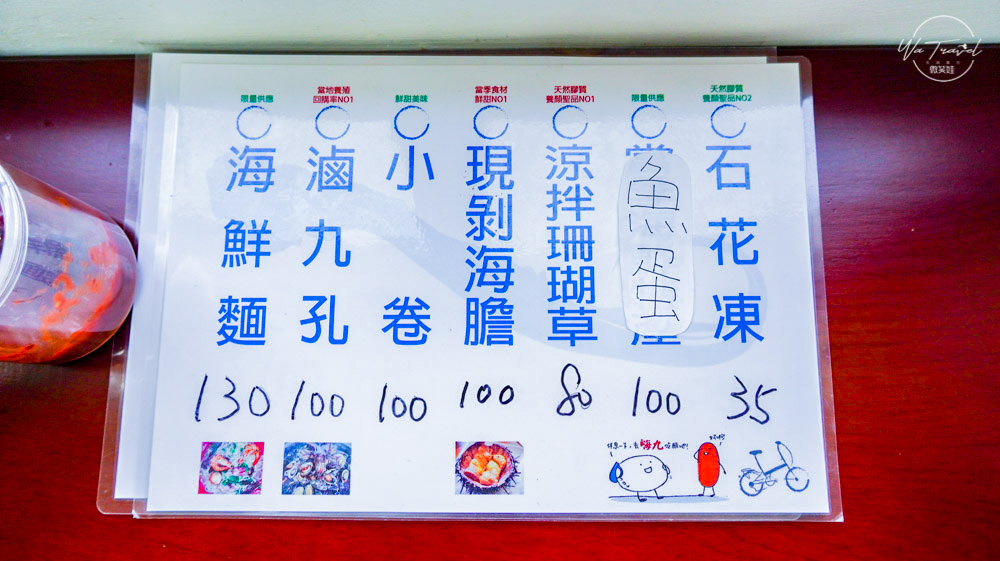 Wa Travel
微笑娃
天然膠質
養顏聖品NO2
石花凍
35
限量供應
魚蛋
100
天然膠質
養顏聖品NO1
涼拌珊瑚草
80
當季食材
鮮甜NO1
現剝海膽
100
鮮甜美味
小卷
100
當地養殖
回購率NO1
滷九孔
100
限量供應
海鮮麵
130
嗨九